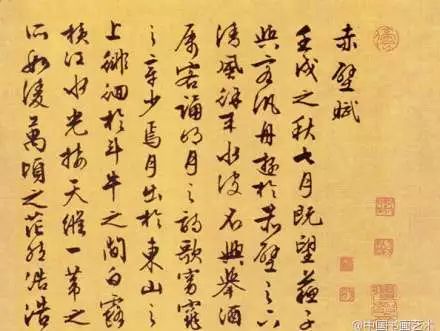 赤壁賦
壬戌之秋七月既望蘇子
與客汎舟遊於赤壁之下
清風徐來水波不興舉酒
屬客誦明月之詩歌窈窕
之章少焉月出於東山之
上徘徊於斗牛之間白露
橫江水光接天縱一葦之
所如凌萬頃之茫然浩浩
@中国书画艺术